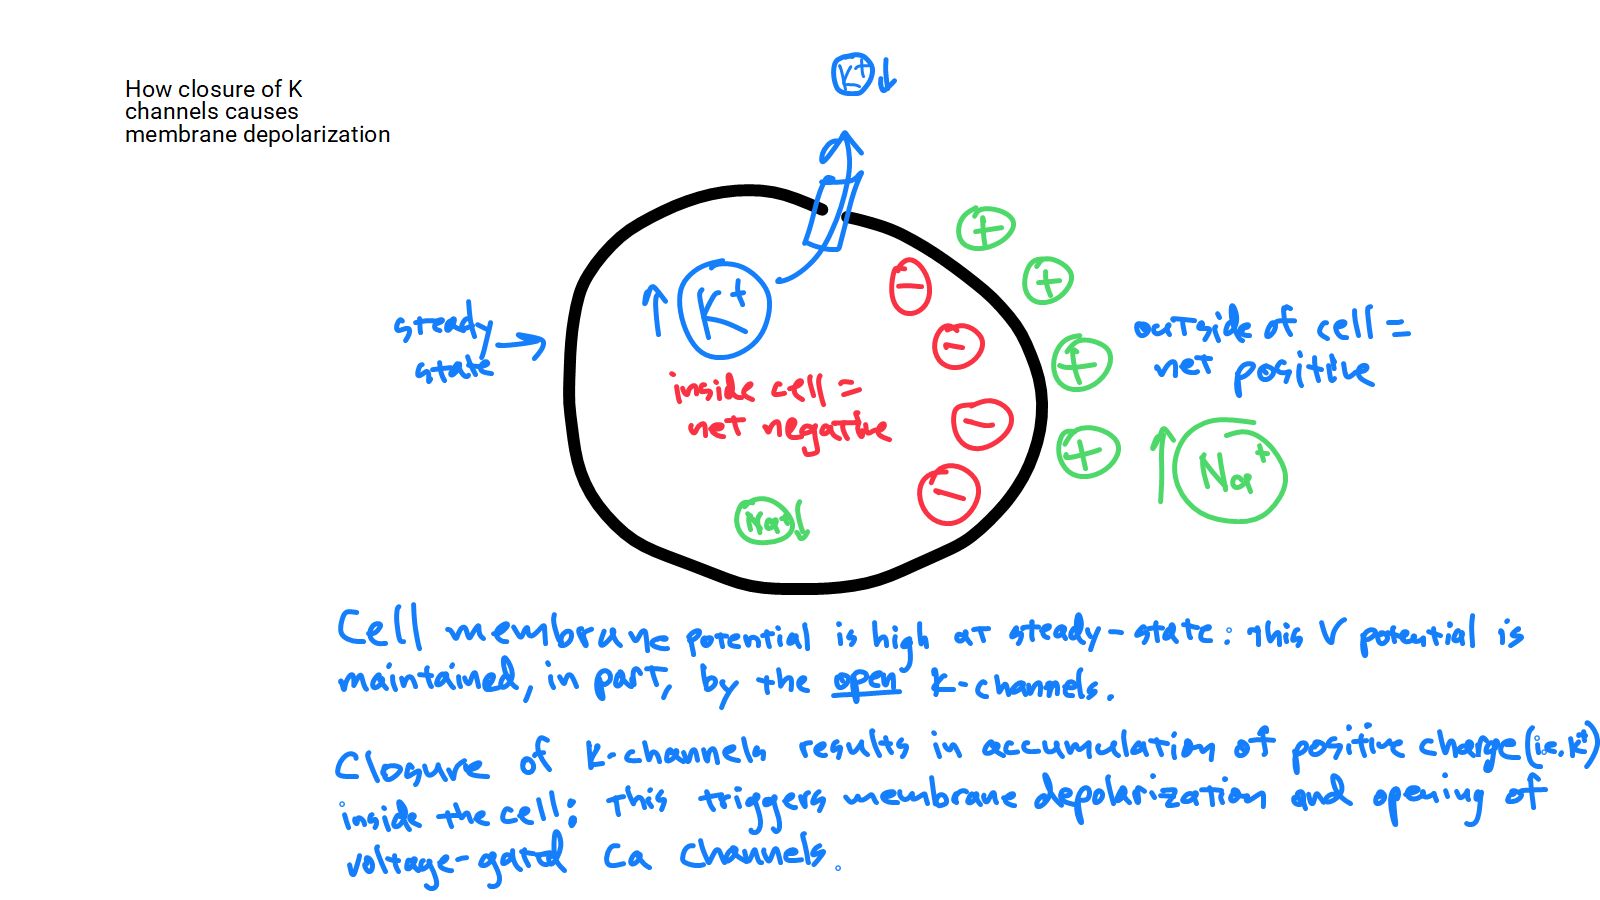 How closure of K
channels causes
membrane depolarization
K+ ↓
↑ K+
steady →
state
inside cell =
net negative
Na+ ↓
−
−
−
−
+
+
+
+
outside of cell =
net positive
↑ Na+
Cell membrane potential is high at steady-state: this V potential is
maintained, in part, by the open K-channels.
Closure of K-channels results in accumulation of positive charge (i.e. K+)
inside the cell: This triggers membrane depolarization and opening of
voltage-gated Ca channels.